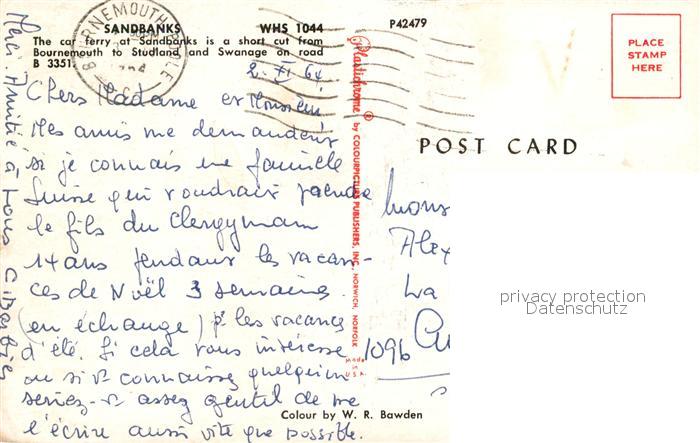 SANDBANKS WHS 1044
The car ferry at Sandbanks is a short cut from
Bournemouth to Studland and Swanage on road
B 3351.
P42479
BOURNEMOUTH POOLE
PLACE
STAMP
HERE
POST CARD
Plastichrome ® by COLOURPICTURE PUBLISHERS, INC., NORWICH, NORFOLK
Made in U.S.A.
2. XI 64
Chers Madame et Monsieur
Mes amis me demandent
si je connais une famille
Suisse qui voudrait prendre
le fils du Clergyman
14 ans pendant les vacan-
ces de Noël 3 semaines.
(en échange) pr les vacances
d'été. Si cela vous intéresse
ou si vs connaissez quelqu'un
seriez-vs assez gentil de me
l'écrire aussi vite que possible.
Merci. Amitié à tous
Mons
Alex
La
1096 Cu
Colour by W. R. Bawden
privacy protection
Datenschutz